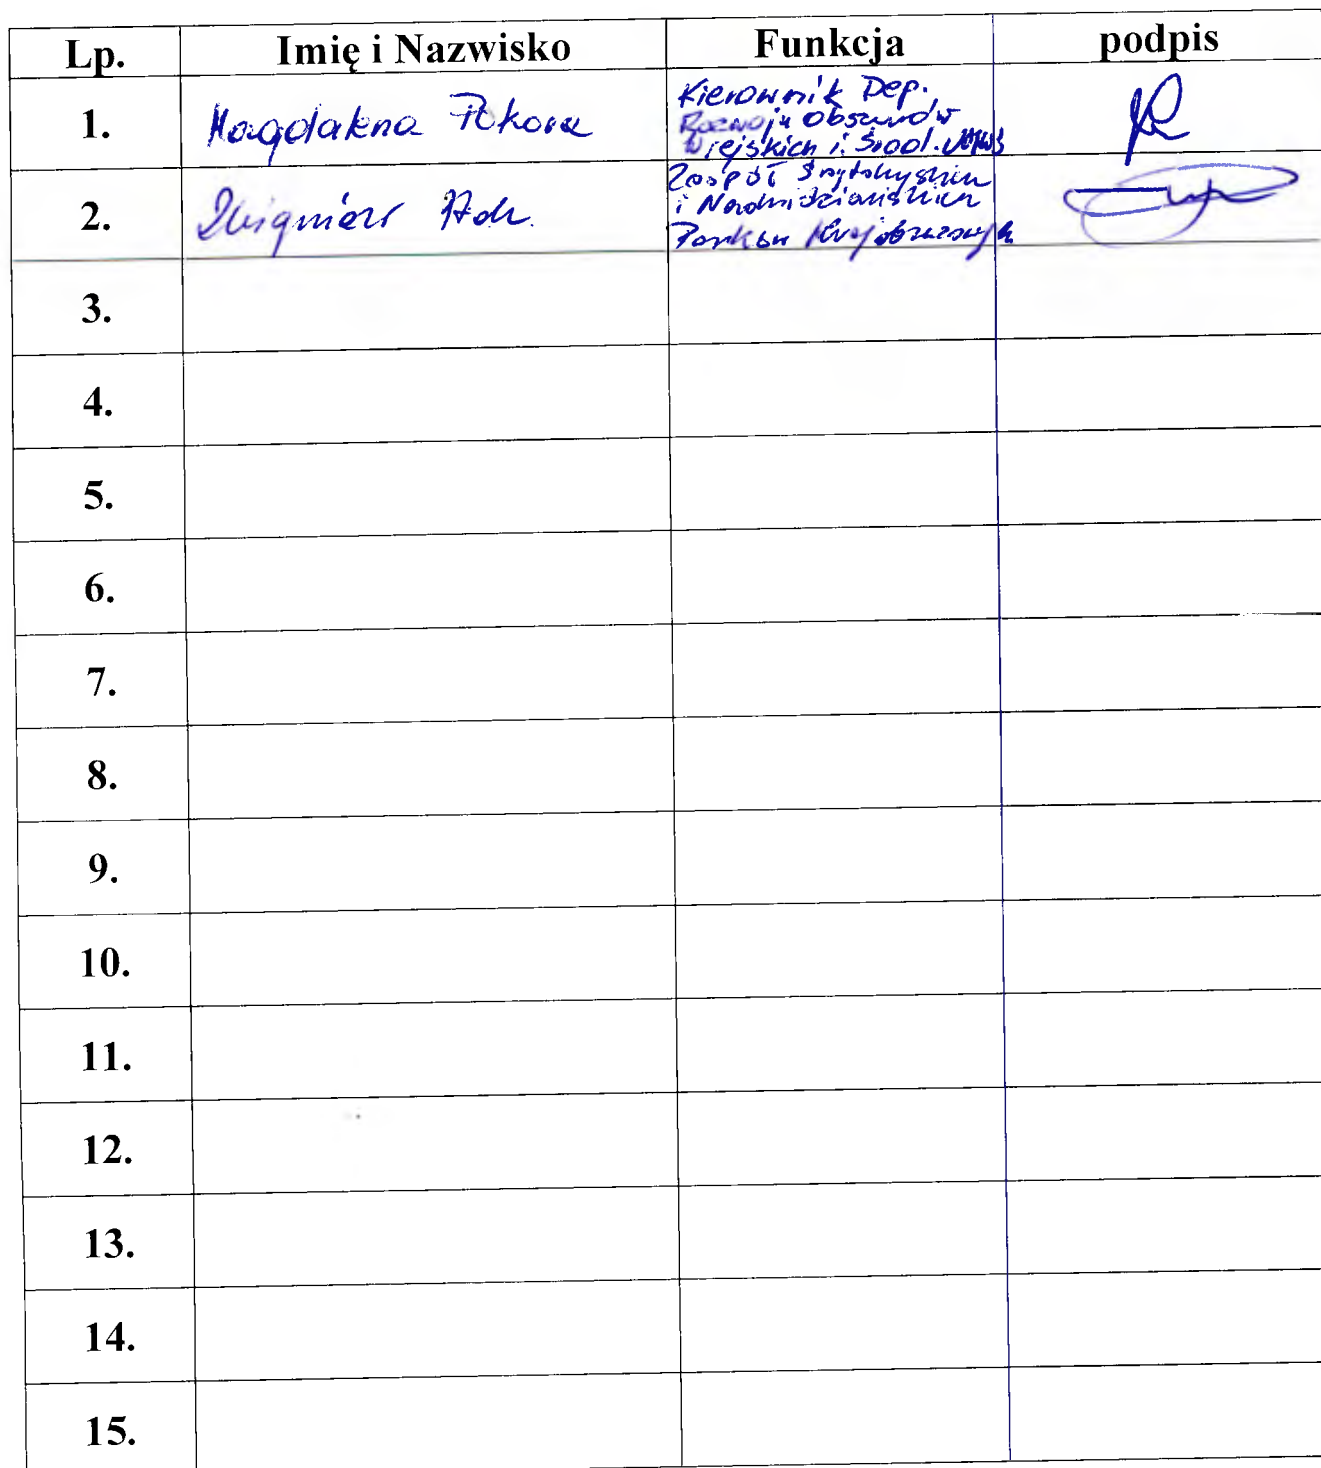 Lp. Imię i Nazwisko Funkcja podpis
1. Magdalena Pokora Kierownik Dep.
Rozwoju Obszarów
Wiejskich i Środ.
2. Zbigniew Zespół Świętokrzyskich
i Nadnidziańskich
Parków Krajobrazowych
3.
4.
5.
6.
7.
8.
9.
10.
11.
12.
13.
14.
15.